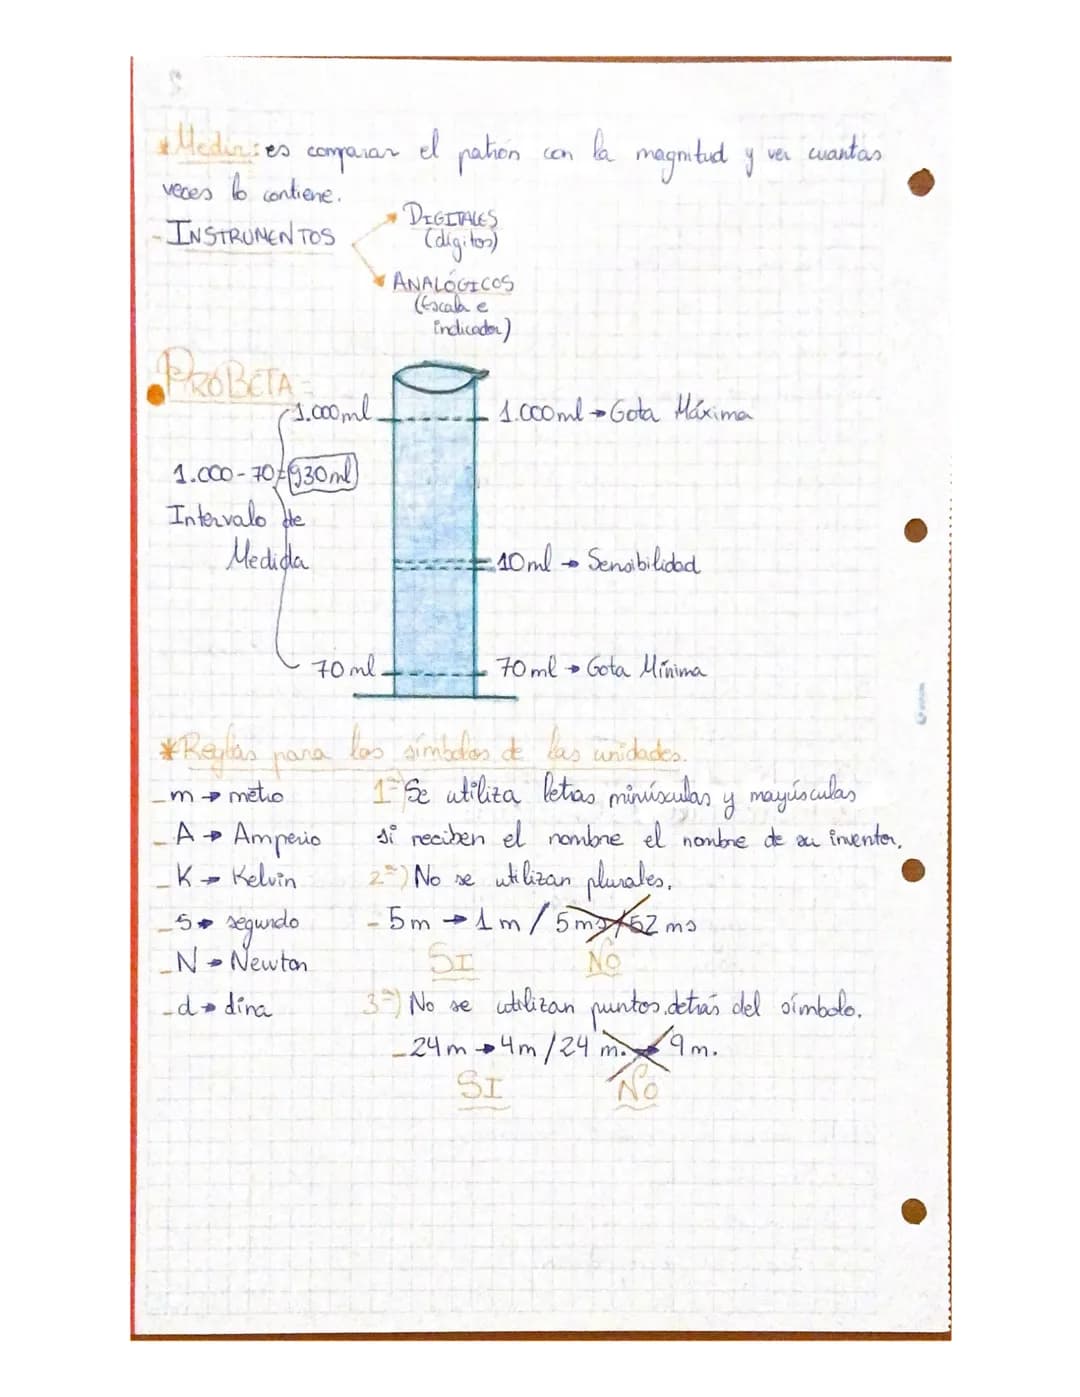 *Medir: es comparar el patrón con la magnitud y ver cuantas
veces lo contiene.
- INSTRUMENTOS
DIGITALES
(dígitos)
ANALÓGICOS
(Escala e
indicador)
PROBETA-
1.000ml
1.000ml → Cota Máxima
1.000-70=930ml
Intervalo de
Medida
10ml → Sensibilidad
70ml
70ml → Cota Mínima
*Reglas para los símbolos de las unidades.
- m → metro
- A → Amperio
- K → Kelvin
- S → segundo
- N → Newton
- d → dina
1ª) Se utiliza letras minúsculas y mayúsculas
si reciben el nombre el nombre de su inventor.
2ª) No se utilizan plurales.
- 5m → 1m / 5ms/52 ms
SI NO
3ª) No se utilizan puntos detrás del símbolo.
- 24m → 4m / 24 m. → 9m.
SI NO